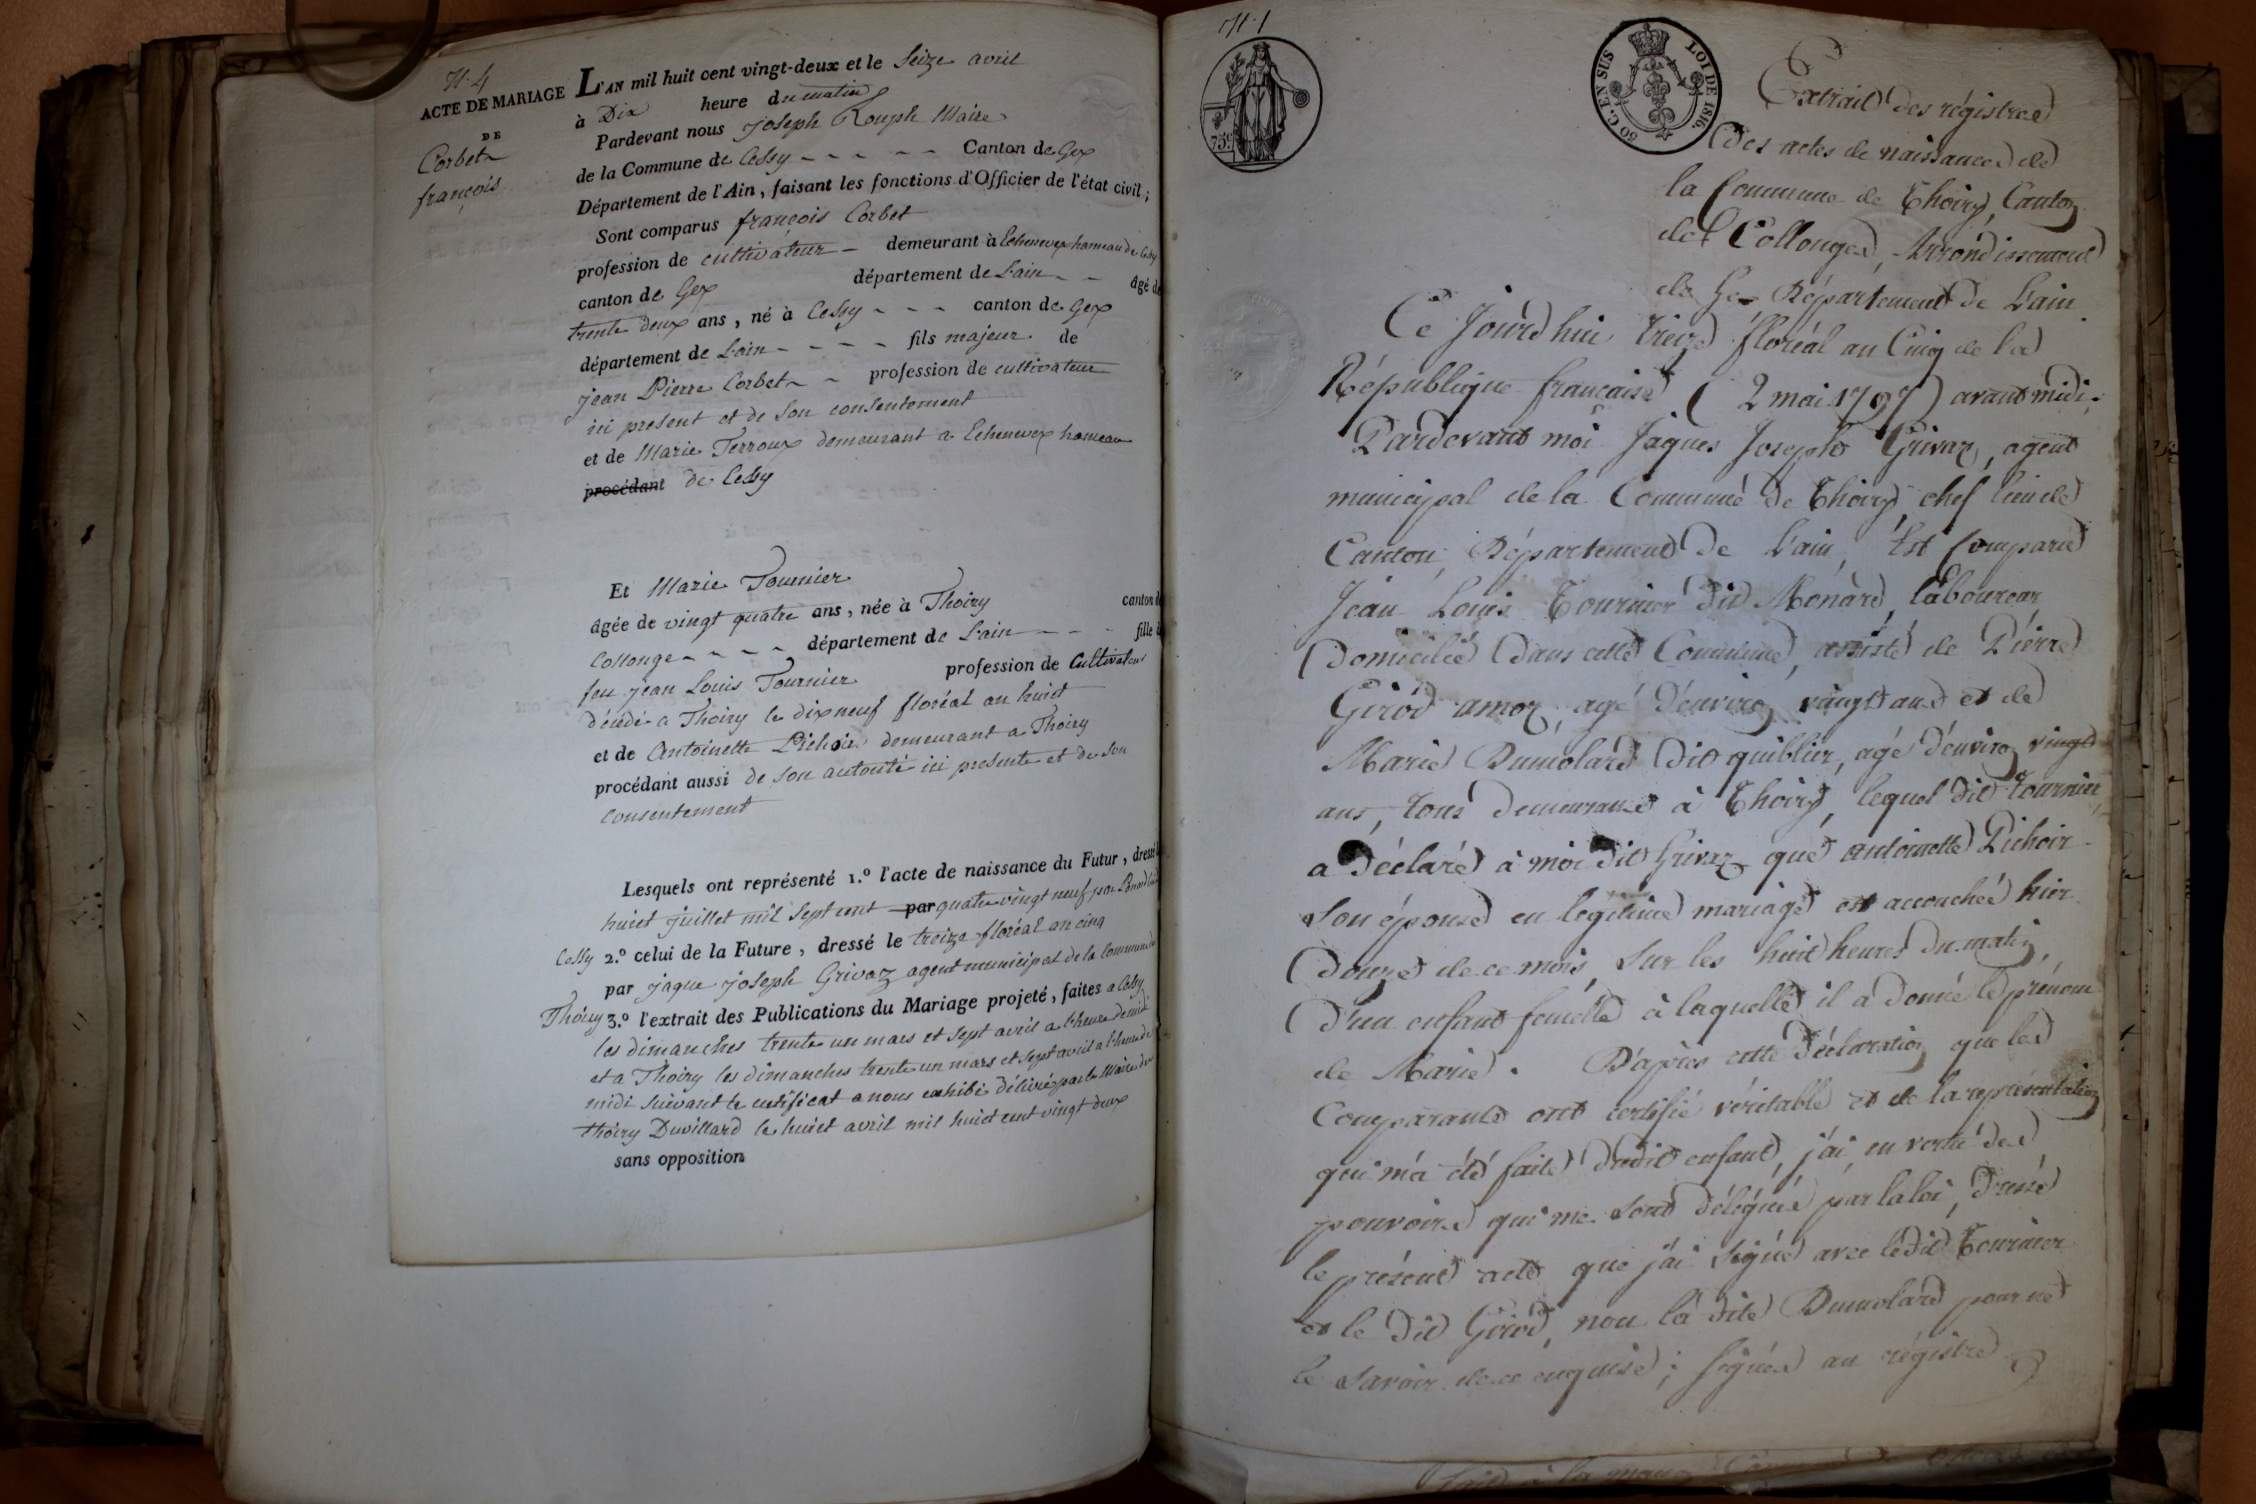 N. 4
ACTE DE MARIAGE
DE
Corbet
françois
L'AN mil huit cent vingt-deux et le Seize avril
à Dix heure du matin
Pardevant nous joseph Rouph Maire
de la Commune de Cessy Canton de Gex
Département de l'Ain, faisant les fonctions d'Officier de l'état civil;
Sont comparus françois Corbet
profession de cultivateur demeurant à Echenevex hameau de Cessy
canton de Gex département de L'ain âgé de
trente deux ans, né à Cessy canton de Gex
département de L'ain fils majeur de
jean Pierre Corbet profession de cultivateur
ici present et de son consentement
et de Marie Terroux demeurant a Echenevex hameau
procédant de Cessy
Et Marie Tournier
âgée de vingt quatre ans, née à Thoiry canton de
Collonge département de L'ain fille de
feu jean Louis Tournier profession de Cultivateur
décédé a Thoiry le dix neuf floréal an huict
et de Antoinette Pichoir demeurant a Thoiry
procédant aussi de son autorité ici presente et de son
consentement
Lesquels ont représenté 1.º l'acte de naissance du Futur, dressé le
huict juillet mil sept cent par quatre vingt neuf par
Cessy 2.º celui de la Future, dressé le treize floréal an cinq
par jaque joseph Grivaz agent municipal de la commune de
Thoiry 3.º l'extrait des Publications du Mariage projeté, faites a Cessy
les dimanches trente un mars et sept avril a l'heure de midi
et a Thoiry les dimanches trente un mars et sept avril a l'heure de
midi suivant le certificat a nous exhibé délivré par le Maire de
Thoiry Duvillard le huict avril mil huict cent vingt deux
sans opposition
N. 1
75 c.
50 C. EN SUS
LOI DE 1816.
Extrait des régistres
des actes de naissances de
la Commune de Thoiry, Canton
de Collonges, Arrondissement
de Gex Département de L'ain
Ce Jourd'hui treize floréal an Cinq de la
République française (2 mai 1797) avant midi,
Pardevant moi Jaques Joseph Grivaz, agent
municipal de la Commune de Thoiry, chef lieu de
Canton, Département de L'ain, Est Comparu
Jean Louis Tournier dit Monard, laboureur
Domicilié dans cette Commune, assisté de Pierre
Girod amoz, agé d'environ vingt ans et de
Marie Dumolard dit quiblier, agé d'environ vingt
ans, tous demeurants à Thoiry, lequel dit Tournier,
a déclaré à moi dit Grivaz que antoinette Pichoir
son épouse en legitime mariage est accouchée hier
Douze de ce mois, sur les huit heures du matin,
D'un enfant femelle à laquelle il a donné le prénom
de Marie. D'après cette déclaration que les
Comparants ont certifié véritable et de la représentation
qui m'a été faite dudit enfant, j'ai, en vertu des
pouvoirs qui me sont délégués par la loi, dressé
le présent acte que j'ai signé avec ledit Tournier
et le dit Girod, non la dite Dumolard pour ne
le savoir de ce enquise; signés au régistre